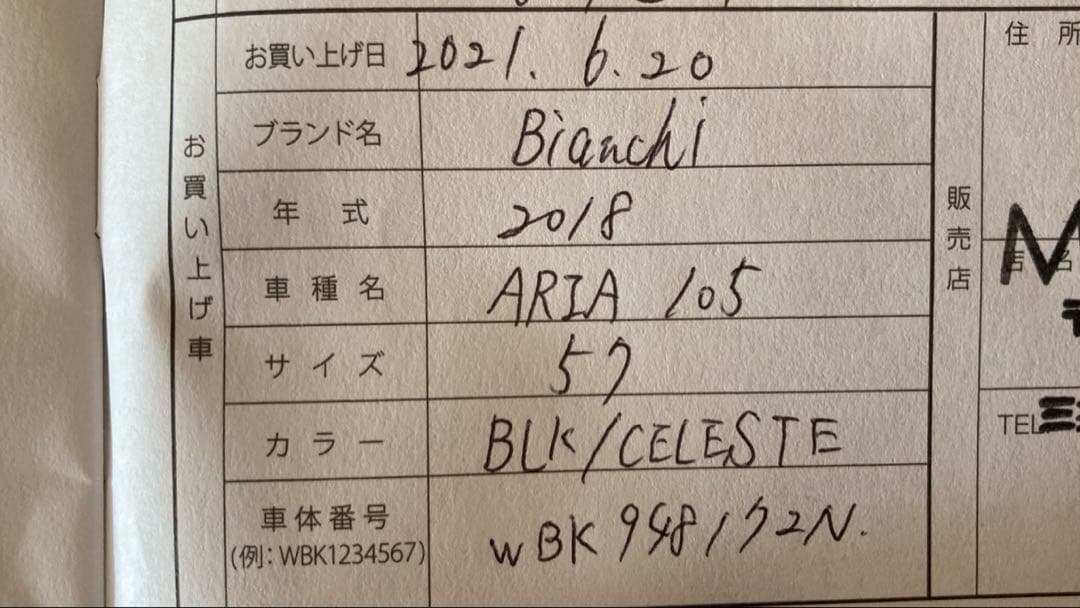 お買い上げ車
お買い上げ日 2021. 6. 20
ブランド名 Bianchi
年式 2018
車種名 ARIA 105
サイズ 57
カラー BLK/CELESTE
車体番号 WBK 948172N.
(例:WBK1234567)
販売店
住所
店名
TEL